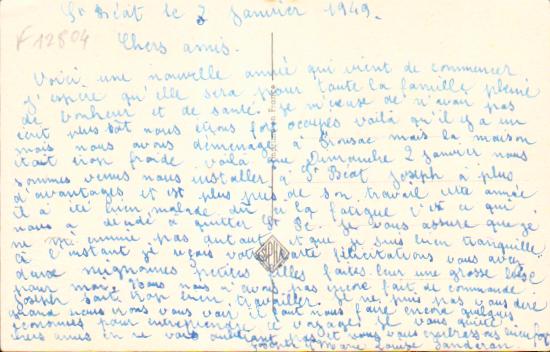 St Béat le 3 Janvier 1949.
F12804
Chers amis.
Voici une nouvelle année qui vient de commencer
J'espère qu'elle sera pour toute la famille pleine
de bonheur et de santé. Je m'excuse de n'avoir pas
écrit plus tôt nous étions fort occupés voilà qu'il y a un
mois nous avons déménagé à mais la maison
était trop froide voilà que Dimanche 2 Janvier nous
sommes venus nous installer à St Béat Joseph a plus
d'avantages et est plus près de son travail cette année
il a été bien malade dû à la fatigue c'est ce qui
nous a décidé à quitter St Je vous assure que je
ne m'ennuie pas autant et que je suis bien tranquille
à l'instant je reçois votre carte félicitations vous avez
deux mignonnes petites filles faites leur une grosse bise
pour moi. nous nous n'avons pas encore fait de commande
Joseph fait trop bien travailler. Je ne puis pas vous dire
quand nous irons vous voir il faut nous faire encore quelques
économies pour entreprendre ce voyage. Je vous quitte
chers amis en ne vous oubliant
Joseph Marie Louise
Fabriqué en France